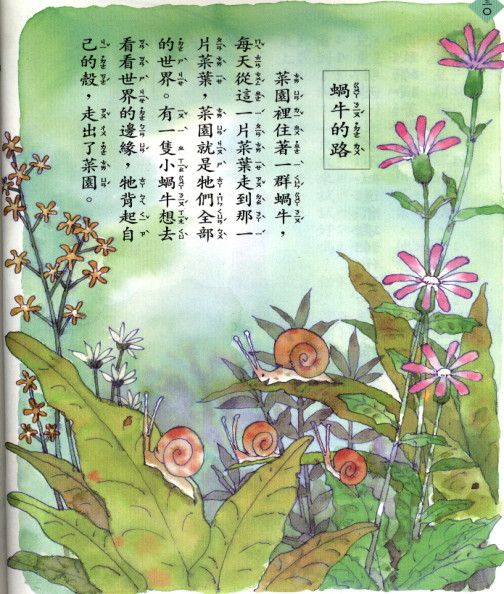 三〇
蝸牛的路
菜園裡住著一群蝸牛，
每天從這一片菜葉走到那一
片菜葉，菜園就是牠們全部
的世界。有一隻小蝸牛想去
看看世界的邊緣，牠背起自
己的殼，走出了菜園。